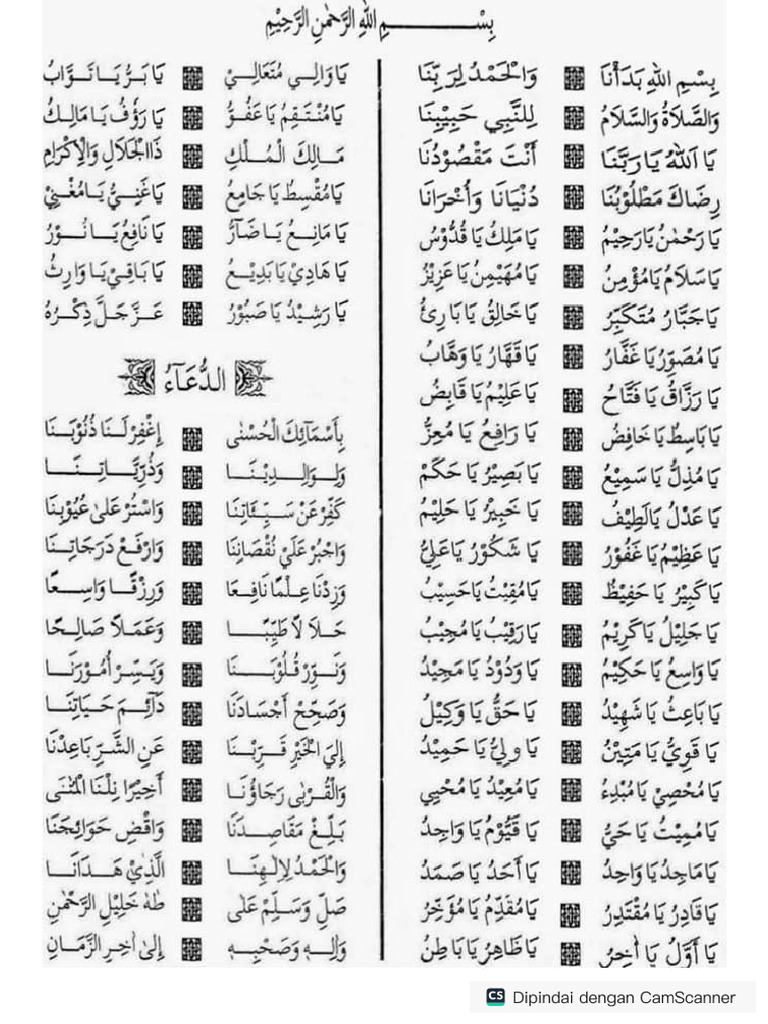 بِسْمِ اللهِ الرَّحْمٰنِ الرَّحِيْمِ
بِسْمِ اللهِ بَدَأْنَا وَالْحَمْدُ لِرَبِّنَا
وَالصَّلَاةُ وَالسَّلَامُ لِلنَّبِي حَبِيْبِنَا
يَا اَللهُ يَا رَبَّنَا أَنْتَ مَقْصُوْدُنَا
رِضَاكَ مَطْلُوْبُنَا دُنْيَانَا وَأُخْرَانَا
يَا رَحْمٰنُ يَا رَحِيْمُ يَا مَلِكُ يَا قُدُّوْسُ
يَا سَلَامُ يَا مُؤْمِنُ يَا مُهَيْمِنُ يَا عَزِيْزُ
يَا جَبَّارُ مُتَكَبِّرُ يَا خَالِقُ يَا بَارِئُ
يَا مُصَوِّرُ يَا غَفَّارُ يَا قَهَّارُ يَا وَهَّابُ
يَا رَزَّاقُ يَا فَتَّاحُ يَا عَلِيْمُ يَا قَابِضُ
يَا بَاسِطُ يَا خَافِضُ يَا رَافِعُ يَا مُعِزُّ
يَا مُذِلُّ يَا سَمِيْعُ يَا بَصِيْرُ يَا حَكَمْ
يَا عَدْلُ يَا لَطِيْفُ يَا خَبِيْرُ يَا حَلِيْمُ
يَا عَظِيْمُ يَا غَفُوْرُ يَا شَكُوْرُ يَا عَلِيُّ
يَا كَبِيْرُ يَا حَفِيْظُ يَا مُقِيْتُ يَا حَسِيْبُ
يَا جَلِيْلُ يَا كَرِيْمُ يَا رَقِيْبُ يَا مُجِيْبُ
يَا وَاسِعُ يَا حَكِيْمُ يَا وَدُوْدُ يَا مَجِيْدُ
يَا بَاعِثُ يَا شَهِيْدُ يَا حَقُّ يَا وَكِيْلُ
يَا قَوِيُّ يَا مَتِيْنُ يَا وَلِيُّ يَا حَمِيْدُ
يَا مُحْصِيْ يَا مُبْدِءُ يَا مُعِيْدُ يَا مُحْيِي
يَا مُمِيْتُ يَا حَيُّ يَا قَيُّوْمُ يَا وَاجِدُ
يَا مَاجِدُ يَا وَاحِدُ يَا أَحَدُ يَا صَمَدُ
يَا قَادِرُ يَا مُقْتَدِرُ يَا مُقَدِّمُ يَا مُؤَخِّرُ
يَا أَوَّلُ يَا اٰخِرُ يَا ظَاهِرُ يَا بَاطِنُ
يَا وَالِي مُتَعَالِيْ يَا بَرُّ يَا تَوَّابُ
يَا مُنْتَقِمُ يَا عَفُوُّ يَا رَؤُفُ يَا مَالِكُ
مَالِكَ الْمُلْكِ ذَا الْجَلَالِ وَالْإِكْرَامِ
يَا مُقْسِطُ يَا جَامِعُ يَا غَنِيُّ يَا مُغْنِيْ
يَا مَانِعُ يَا ضَآرُّ يَا نَافِعُ يَا نُوْرُ
يَا هَادِيْ يَا بَدِيْعُ يَا بَاقِيْ يَا وَارِثُ
يَا رَشِيْدُ يَا صَبُوْرُ عَزَّ جَلَّ ذِكْرُهُ
الدُّعَآءُ
بِأَسْمَآئِكَ الْحُسْنٰى إِغْفِرْ لَنَا ذُنُوْبَنَا
وَلِوَالِدِيْنَا وَذُرِّيَّاتِنَا
كَفِّرْ عَنْ سَيِّئَاتِنَا وَاسْتُرْ عَلٰى عُيُوْبِنَا
وَاجْبُرْ عَلَيْ نُقْصَانِنَا وَارْفَعْ دَرَجَاتِنَا
وَزِدْنَا عِلْمًا نَافِعًا وَرِزْقًا وَاسِعًا
حَلَالًا طَيِّبًا وَعَمَلًا صَالِحًا
وَنَوِّرْ قُلُوْبَنَا وَيَسِّرْ أُمُوْرَنَا
وَصَحِّحْ أَجْسَادَنَا دَآئِمَ حَيَاتِنَا
إِلَي الْخَيْرِ قَرِّبْنَا عَنِ الشَّرِّ بَاعِدْنَا
وَالْقُرْبٰى رَجَاؤُنَا أَخِيْرًا نِلْنَا الْمُنٰى
بَلِّغْ مَقَاصِدَنَا وَاقْضِ حَوَائِجَنَا
وَالْحَمْدُ لِإِلٰهِنَا الَّذِيْ هَدَانَا
صَلِّ وَسَلِّمْ عَلٰى طٰهٰ خَلِيْلِ الرَّحْمٰنِ
وَاٰلِهٖ وَصَحْبِهٖ إِلٰى اٰخِرِ الزَّمَانِ
CS Dipindai dengan CamScanner